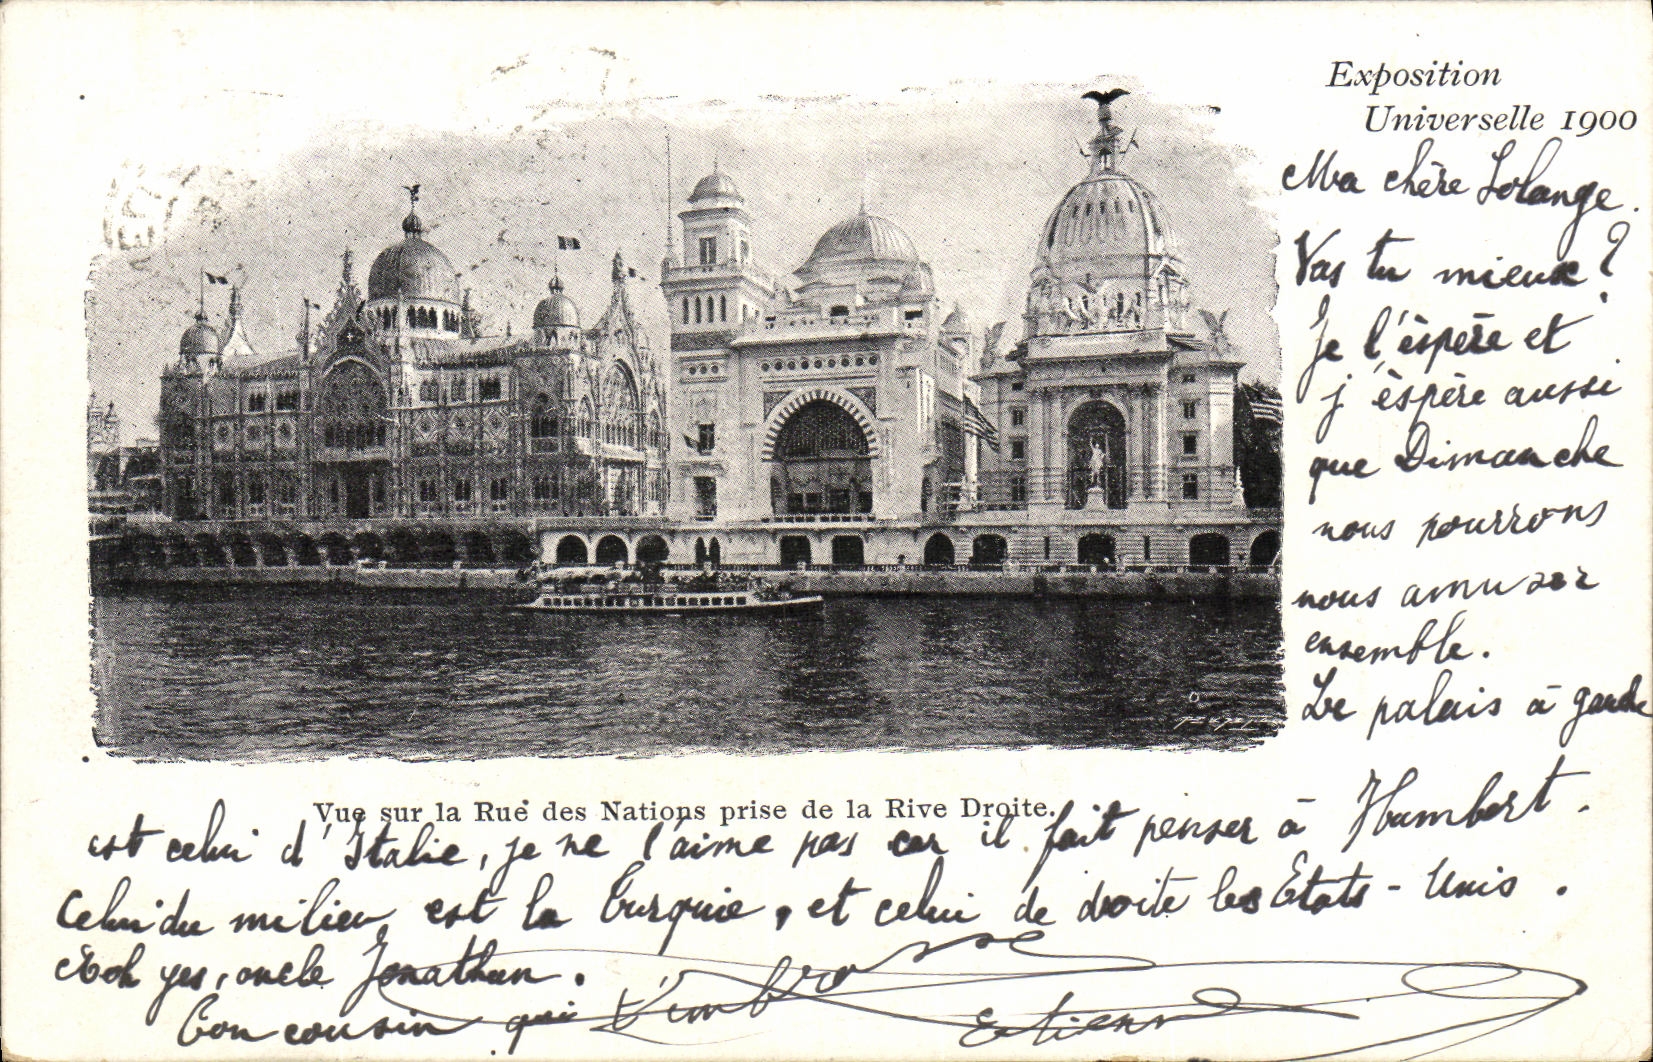 Exposition
Universelle 1900
Ma chère Solange.
Vas tu mieux?
Je l'èspère et
j'èspère aussi
que Dimanche
nous pourrons
nous amuser
ensemble.
Le palais à gauche
Vue sur la Rue des Nations prise de la Rive Droite.
est celui d'Italie, je ne l'aime pas car il fait penser à Humbert.
Celui du milieu est la Turquie, et celui de droite les Etats-Unis.
Aoh yes, oncle Jonathan.
Ton cousin qui t'embrasse
Etienne